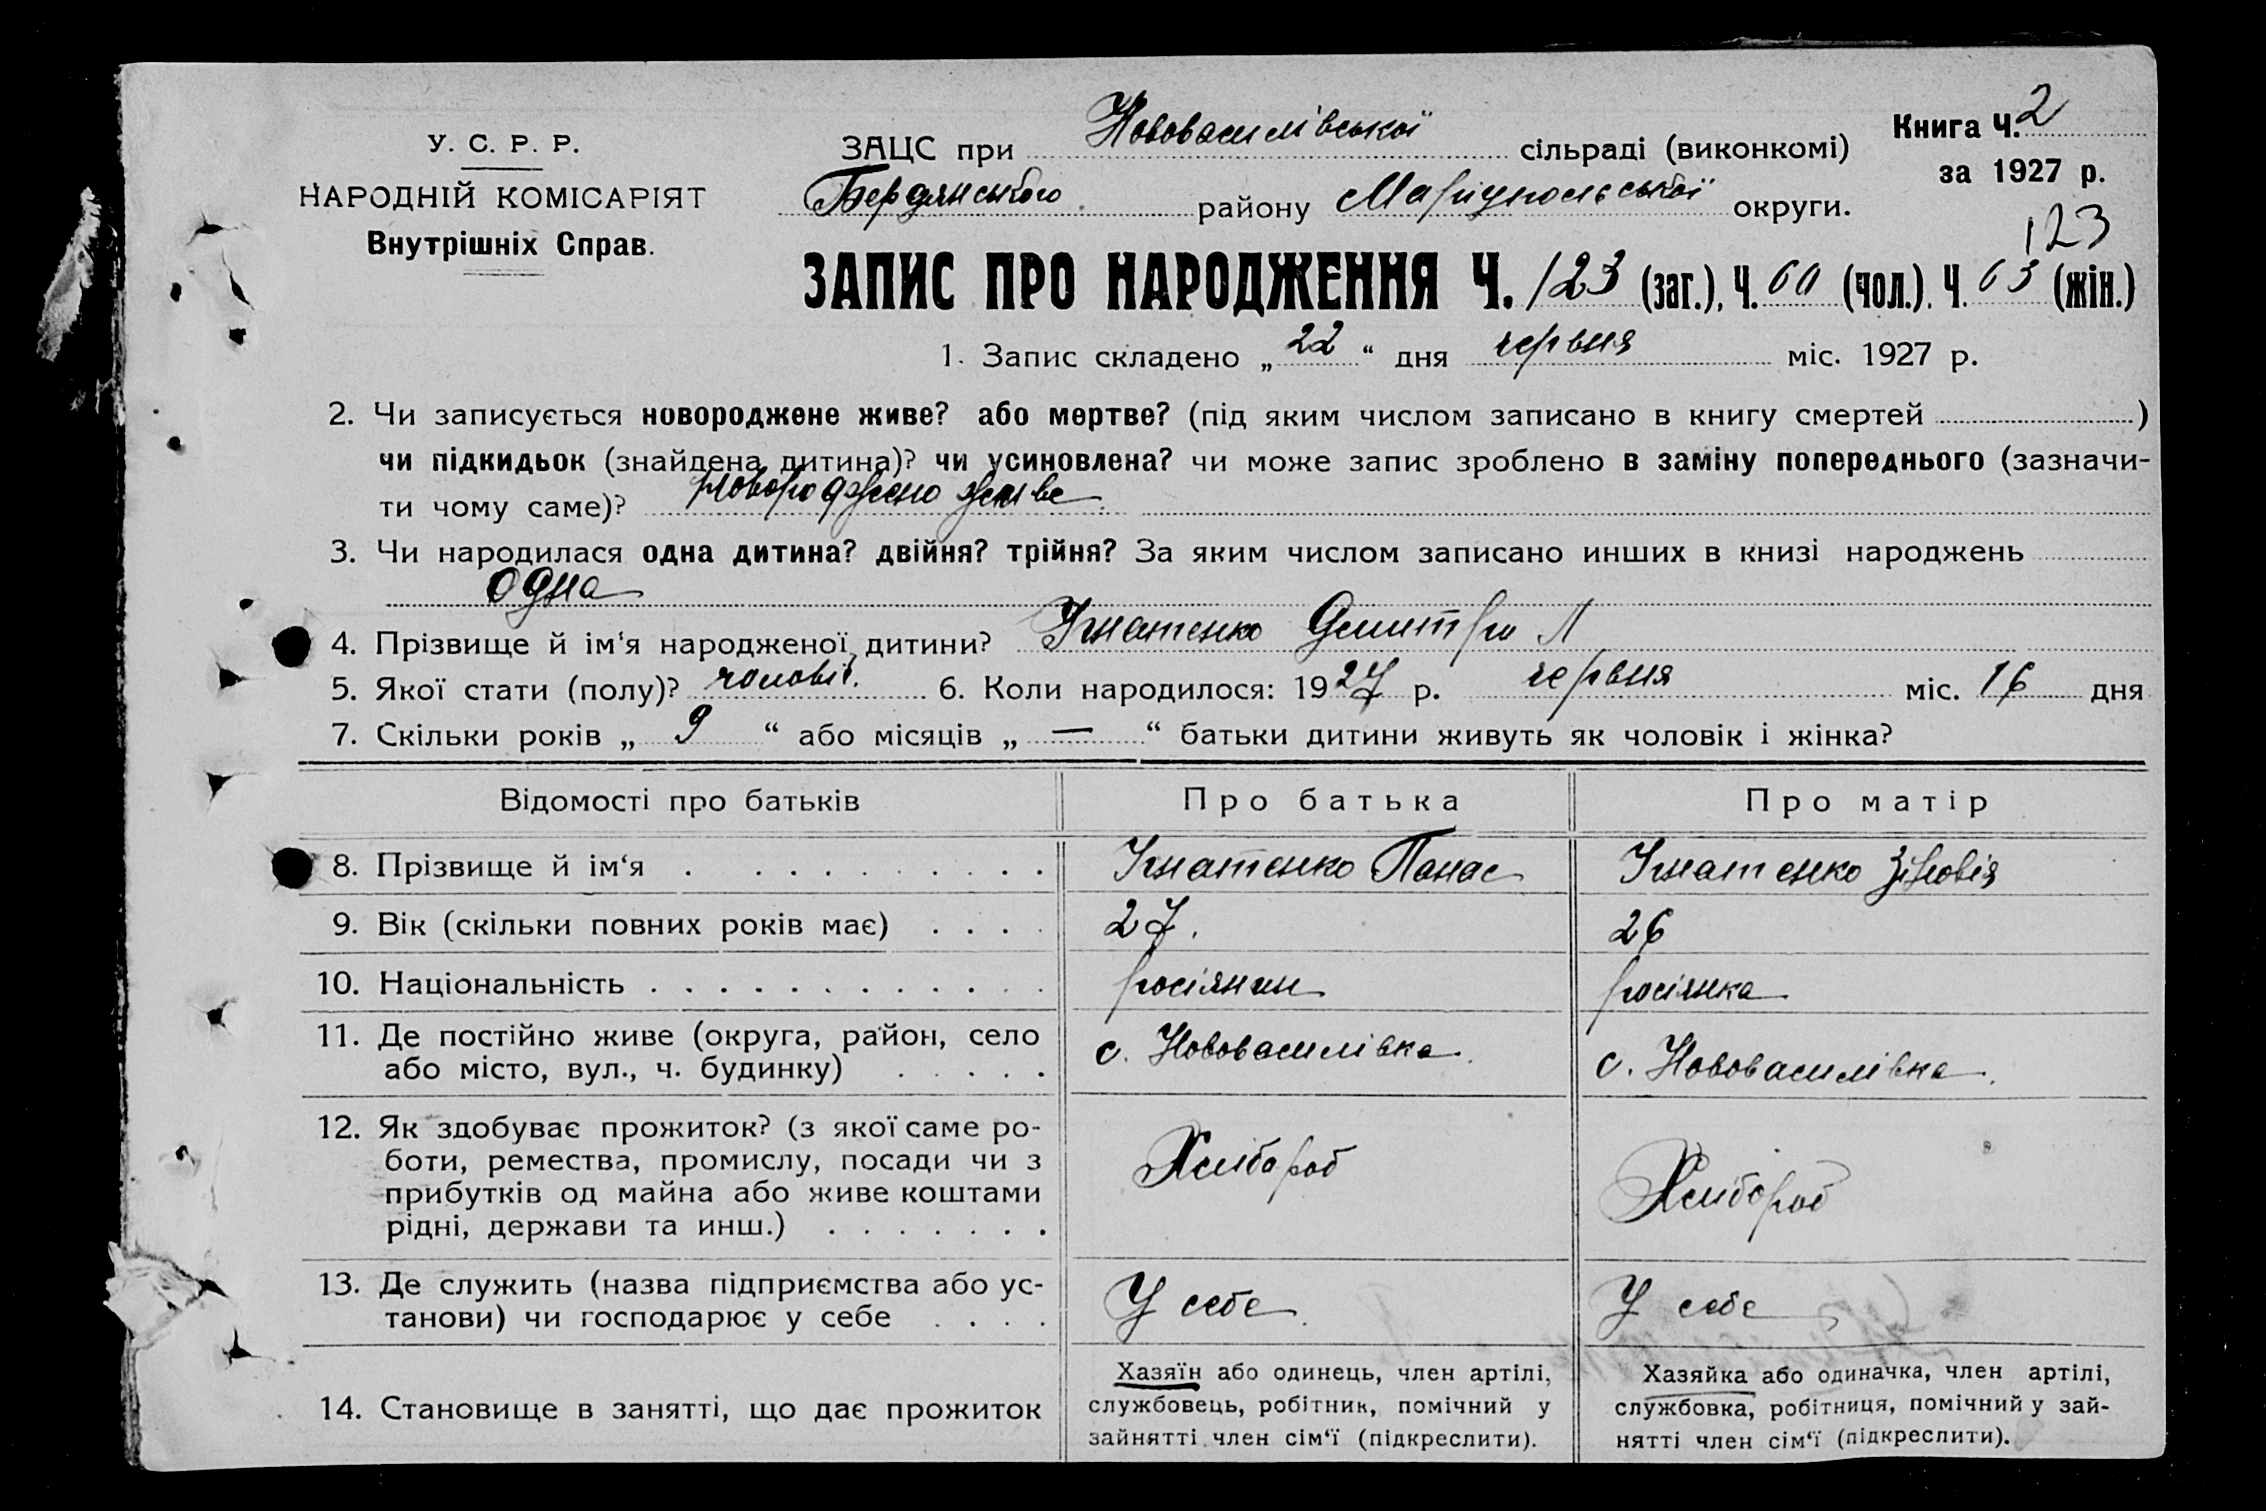 У. С. Р. Р.
НАРОДНІЙ КОМІСАРІЯТ
Внутрішніх Справ.
ЗАЦС при Нововасилівської сільраді (виконкомі)
Бердянського району Маріупольської округи.
Книга Ч. 2
за 1927 р.
123
ЗАПИС ПРО НАРОДЖЕННЯ Ч. 123 (заг.), Ч. 60 (чол.). Ч. 63 (жін.)
1. Запис складено „ 22 “ дня червня міс. 1927 р.
2. Чи записується новороджене живе? або мертве? (під яким числом записано в книгу смертей )
чи підкидьок (знайдена дитина)? чи усиновлена? чи може запис зроблено в заміну попереднього (зазначи-
ти чому саме)? новороджено живе.
3. Чи народилася одна дитина? двійня? трійня? За яким числом записано инших в книзі народжень
одна
4. Прізвище й ім‘я народженої дитини? Ігнатенко Дмитро П
5. Якої стати (полу)? чоловіч. 6. Коли народилося: 1927 р. червня міс. 16 дня
7. Скільки років „ 9 “ або місяців „ — “ батьки дитини живуть як чоловік і жінка?
Відомості про батьків Про батька Про матір
8. Прізвище й ім‘я . . . . . . . . . . Ігнатенко Панас Ігнатенко Зіновія
9. Вік (скільки повних років має) . . . . 27. 26
10. Національність . . . . . . . . . . . . росіянин росіянка
11. Де постійно живе (округа, район, село
або місто, вул., ч. будинку) . . . . . с. Нововасилівка. с. Нововасилівка.
12. Як здобуває прожиток? (з якої саме ро-
боти, ремества, промислу, посади чи з
прибутків од майна або живе коштами
рідні, держави та инш.) . . . . . . . Хлібороб Хлібороб
13. Де служить (назва підприємства або ус-
танови) чи господарює у себе . . . . У себе. У себе
14. Становище в занятті, що дає прожиток
Хазяїн або одинець, член артілі,
службовець, робітник, помічний у
зайнятті член сім‘ї (підкреслити).
Хазяйка або одиначка, член артілі,
службовка, робітниця, помічний у зай-
нятті член сім‘ї (підкреслити).